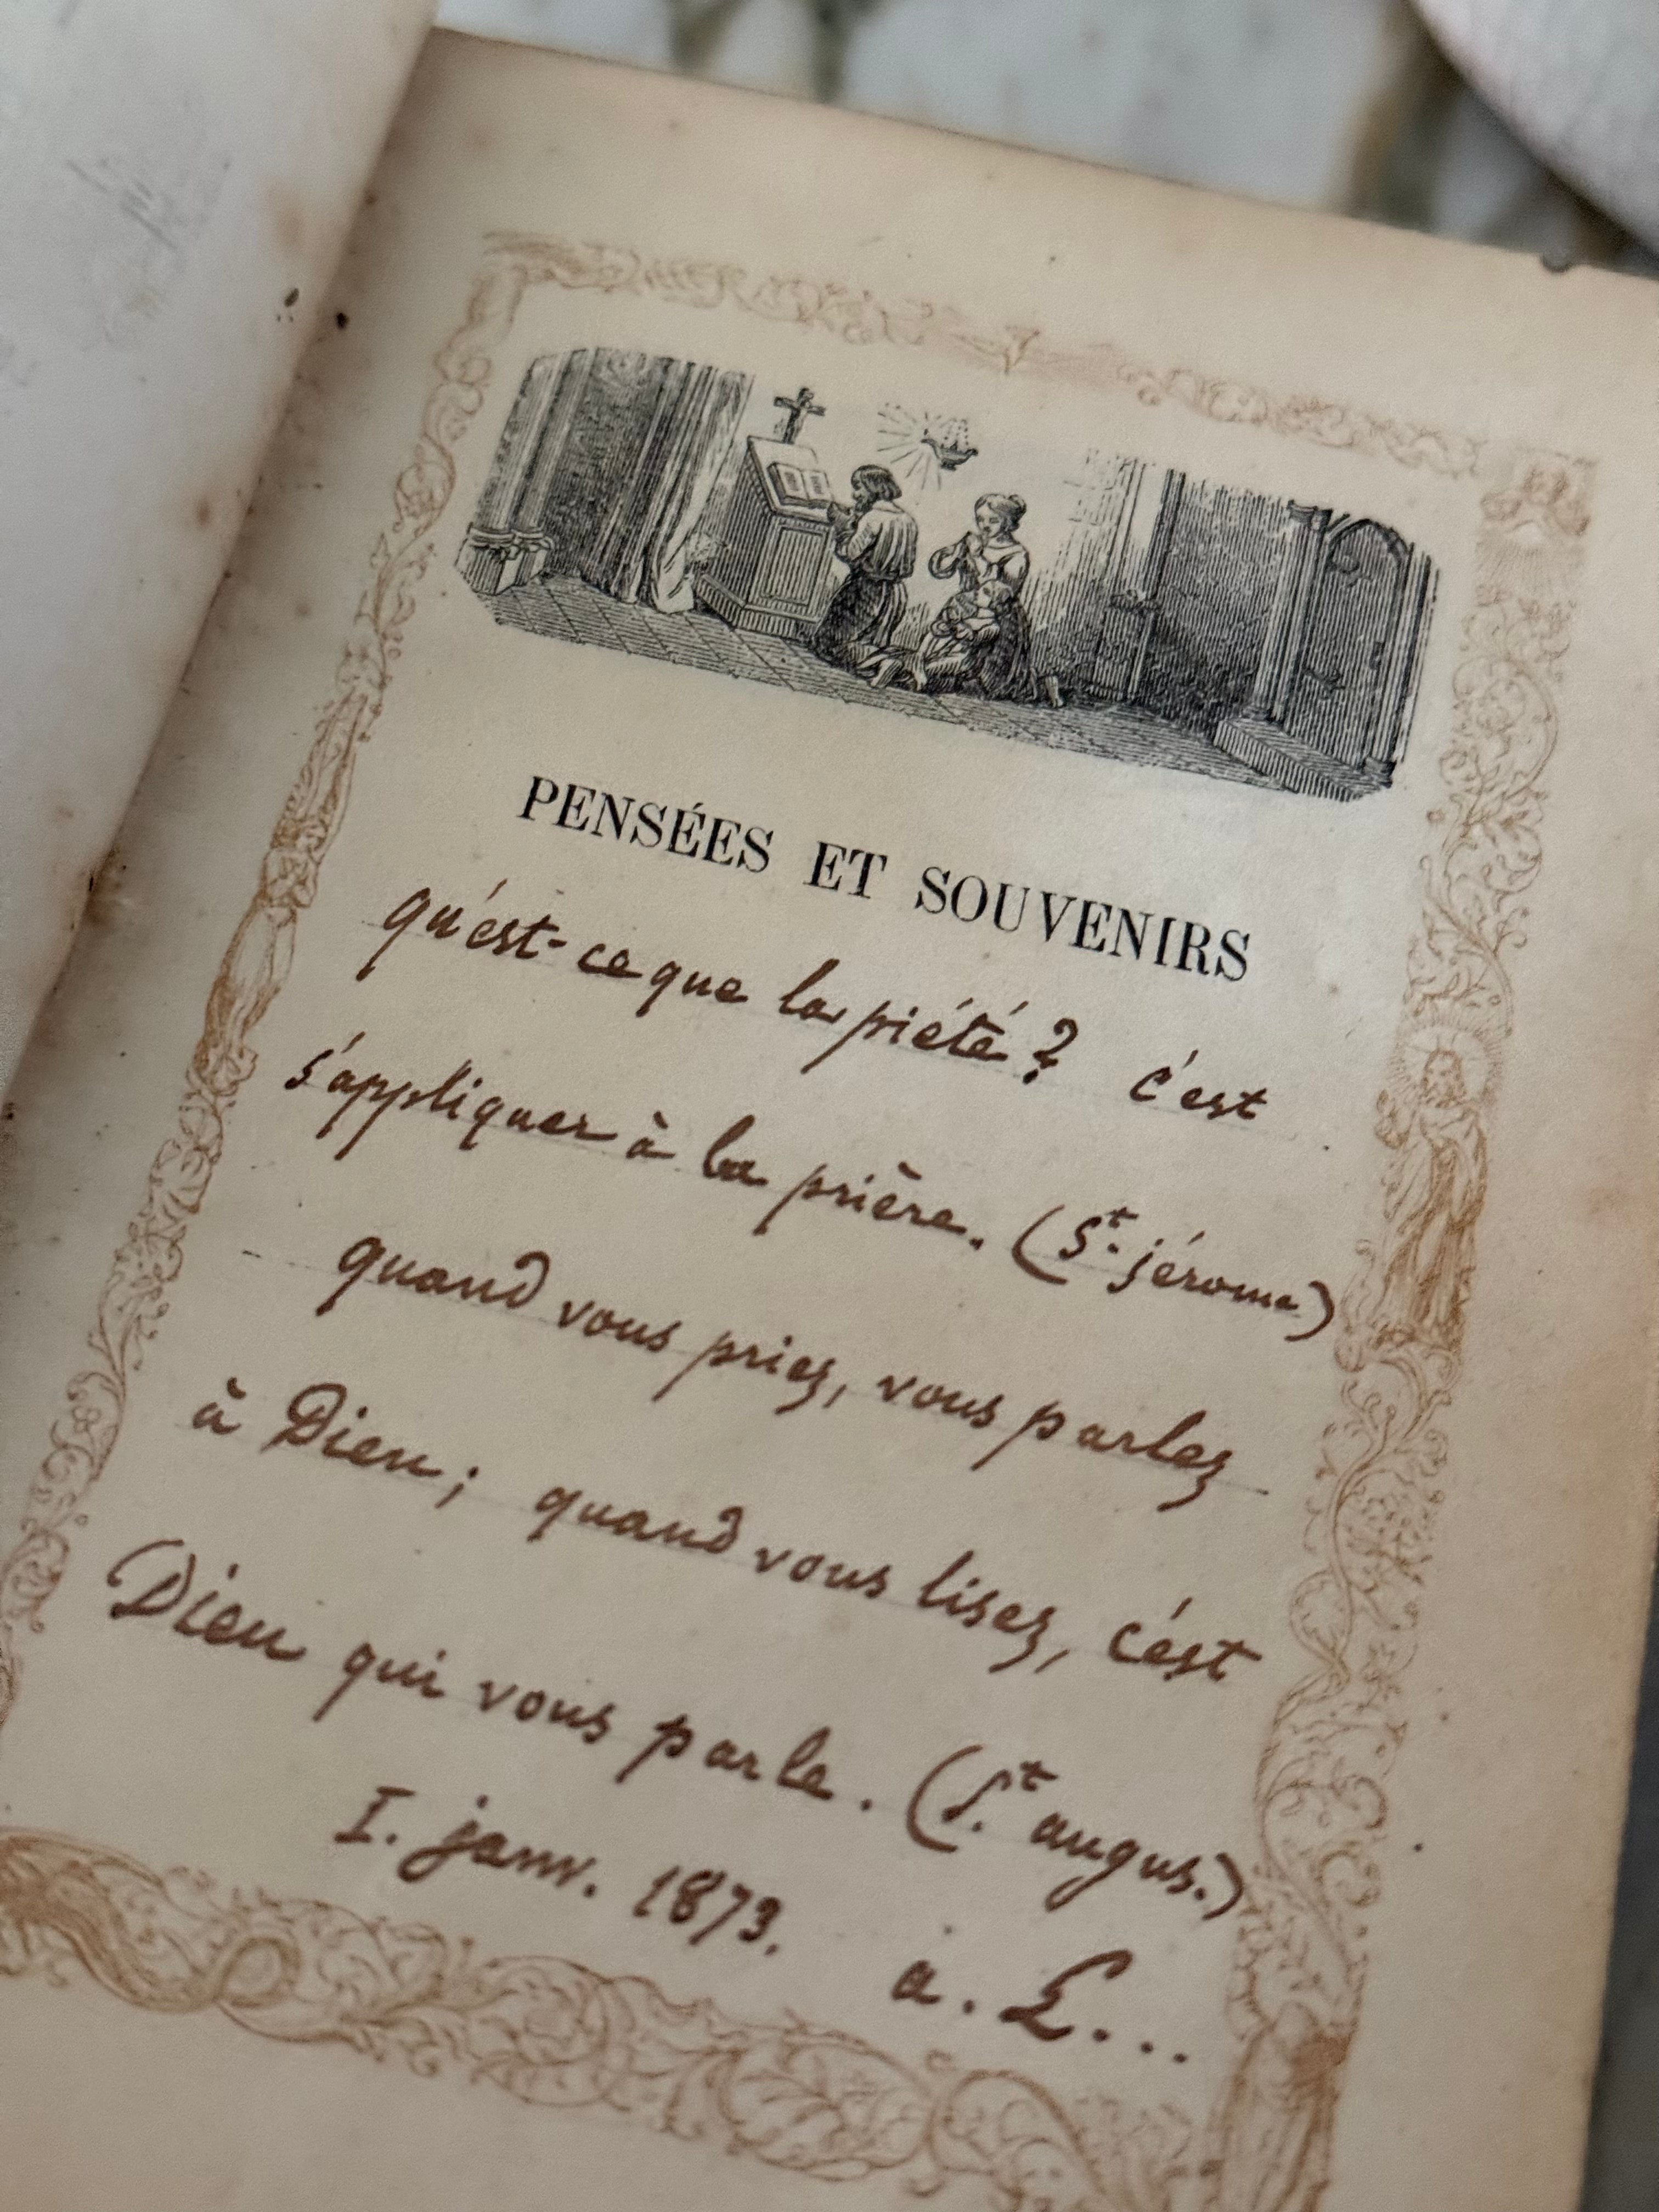 PENSÉES ET SOUVENIRS
qu'est-ce que la piété ? c'est
s'appliquer à la prière. (St. jérome)
quand vous priez, vous parlez
à Dieu ; quand vous lisez, c'est
Dieu qui vous parle. (St. augus.)
I. janv. 1873.
a. L...